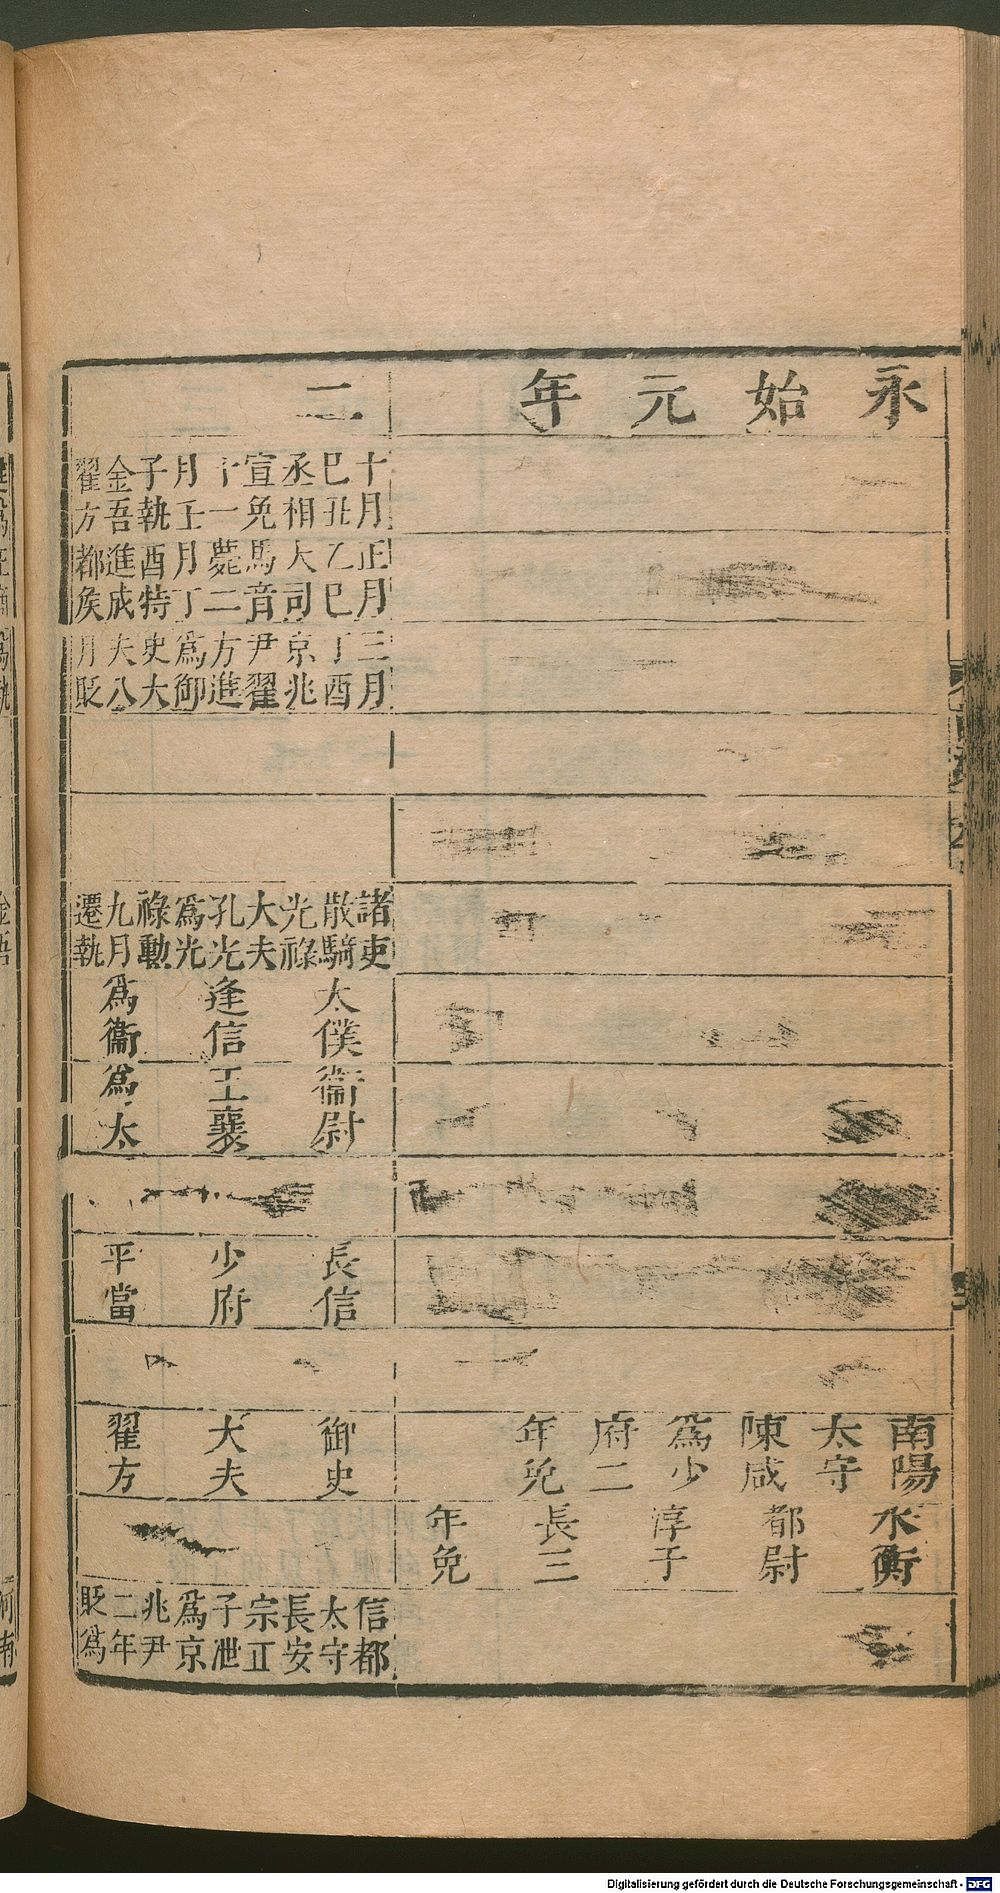 永始元年
南陽太守陳咸爲少府二年免
水衡都尉淳子長三年免
二
十月巳丑丞相宣免十一月壬子執金吾翟方
正月乙巳大司馬音薨二月丁酉特進成都矦
三月丁酉京兆尹翟方進爲御史大夫八月貶
諸吏散騎光祿大夫孔光爲光祿勳九月遷執
太僕逢信爲衞
衞尉王襄爲太
長信少府平當
御史大夫翟方
信都太守長安宗正子泄爲京兆尹二年貶爲
Digitalisierung gefördert durch die Deutsche Forschungsgemeinschaft - DFG